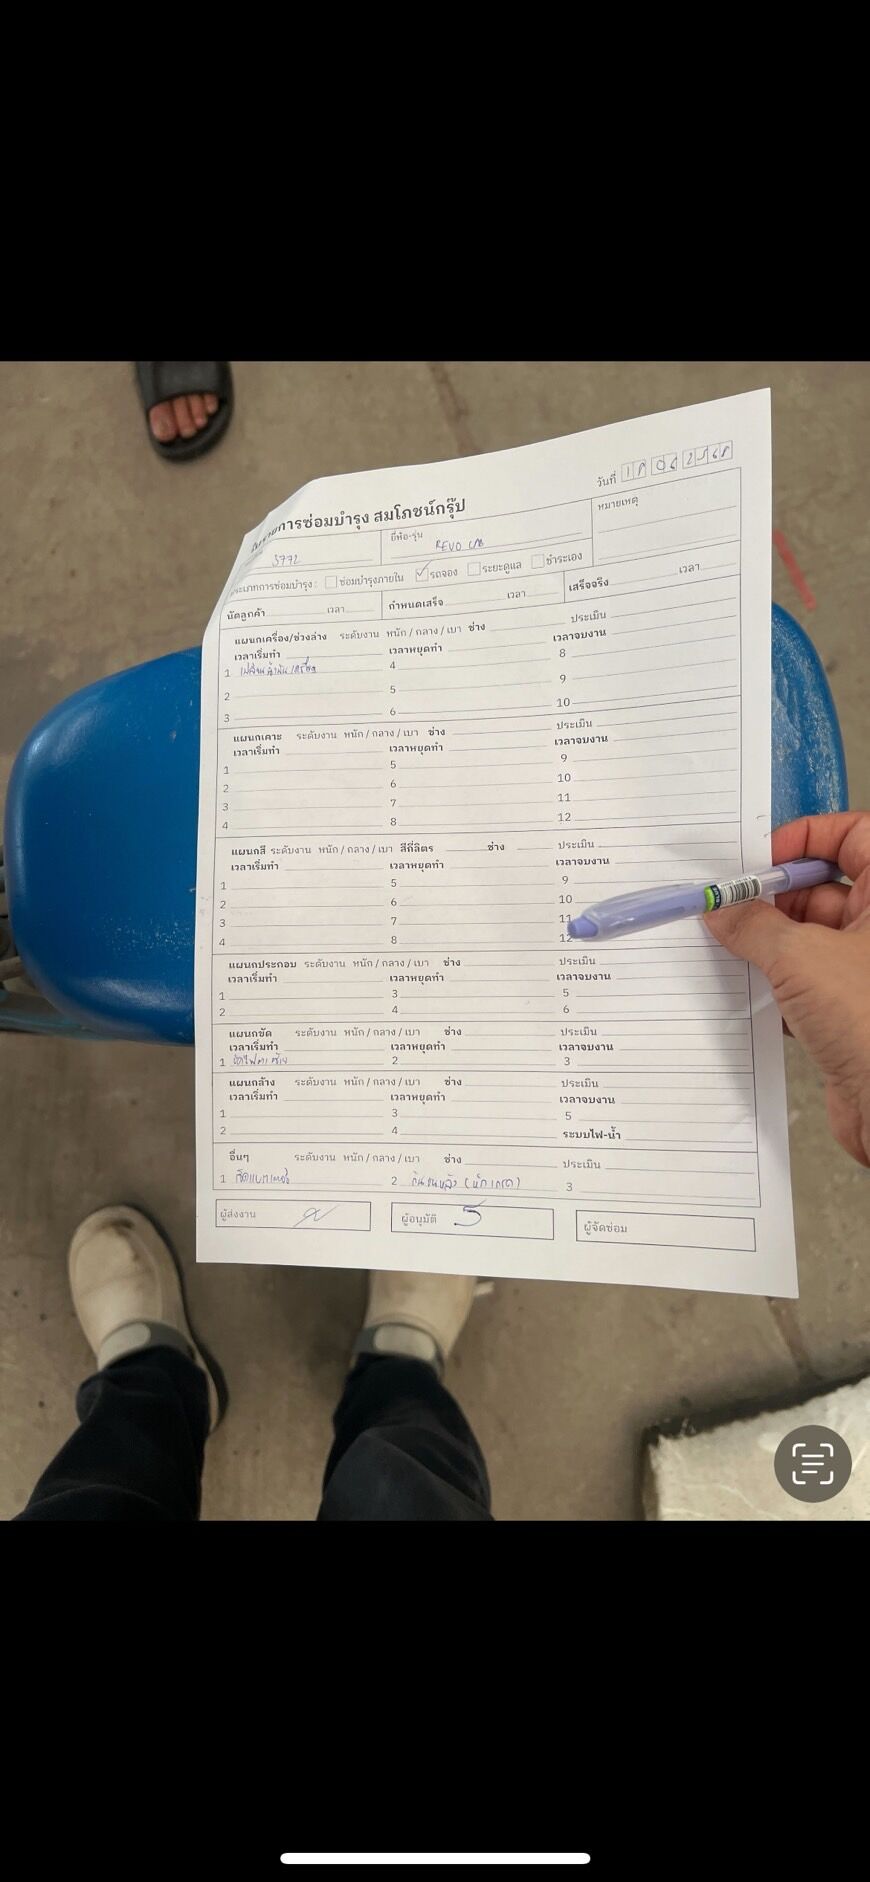 ใบรายการซ่อมบำรุง สมโภชน์กรุ๊ป
วันที่ 18 06 2568
3772
ยี่ห้อ-รุ่น REVO CAB
หมายเหตุ
ประเภทการซ่อมบำรุง: ซ่อมบำรุงภายใน รถจอง ระยะดูแล ชำระเอง
นัดลูกค้า เวลา กำหนดเสร็จ เวลา เสร็จจริง เวลา
แผนกเครื่อง/ช่วงล่าง ระดับงาน หนัก / กลาง / เบา ช่าง ประเมิน
เวลาเริ่มทำ เวลาหยุดทำ เวลาจบงาน
1 เปลี่ยนน้ำมันเครื่อง 4 8
2 5 9
3 6 10
แผนกเคาะ ระดับงาน หนัก / กลาง / เบา ช่าง ประเมิน
เวลาเริ่มทำ เวลาหยุดทำ เวลาจบงาน
1 5 9
2 6 10
3 7 11
4 8 12
แผนกสี ระดับงาน หนัก / กลาง / เบา สีกี่ลิตร ช่าง ประเมิน
เวลาเริ่มทำ เวลาหยุดทำ เวลาจบงาน
1 5 9
2 6 10
3 7 11
4 8 12
แผนกประกอบ ระดับงาน หนัก / กลาง / เบา ช่าง ประเมิน
เวลาเริ่มทำ เวลาหยุดทำ เวลาจบงาน
1 3 5
2 4 6
แผนกขัด ระดับงาน หนัก / กลาง / เบา ช่าง ประเมิน
เวลาเริ่มทำ เวลาหยุดทำ เวลาจบงาน
1 2 3
แผนกล้าง ระดับงาน หนัก / กลาง / เบา ช่าง ประเมิน
เวลาเริ่มทำ เวลาหยุดทำ เวลาจบงาน
1 3 5
2 4 ระบบไฟ-น้ำ
อื่นๆ ระดับงาน หนัก / กลาง / เบา ช่าง ประเมิน
1 2 3
ผู้ส่งงาน ผู้อนุมัติ ผู้จัดซ่อม